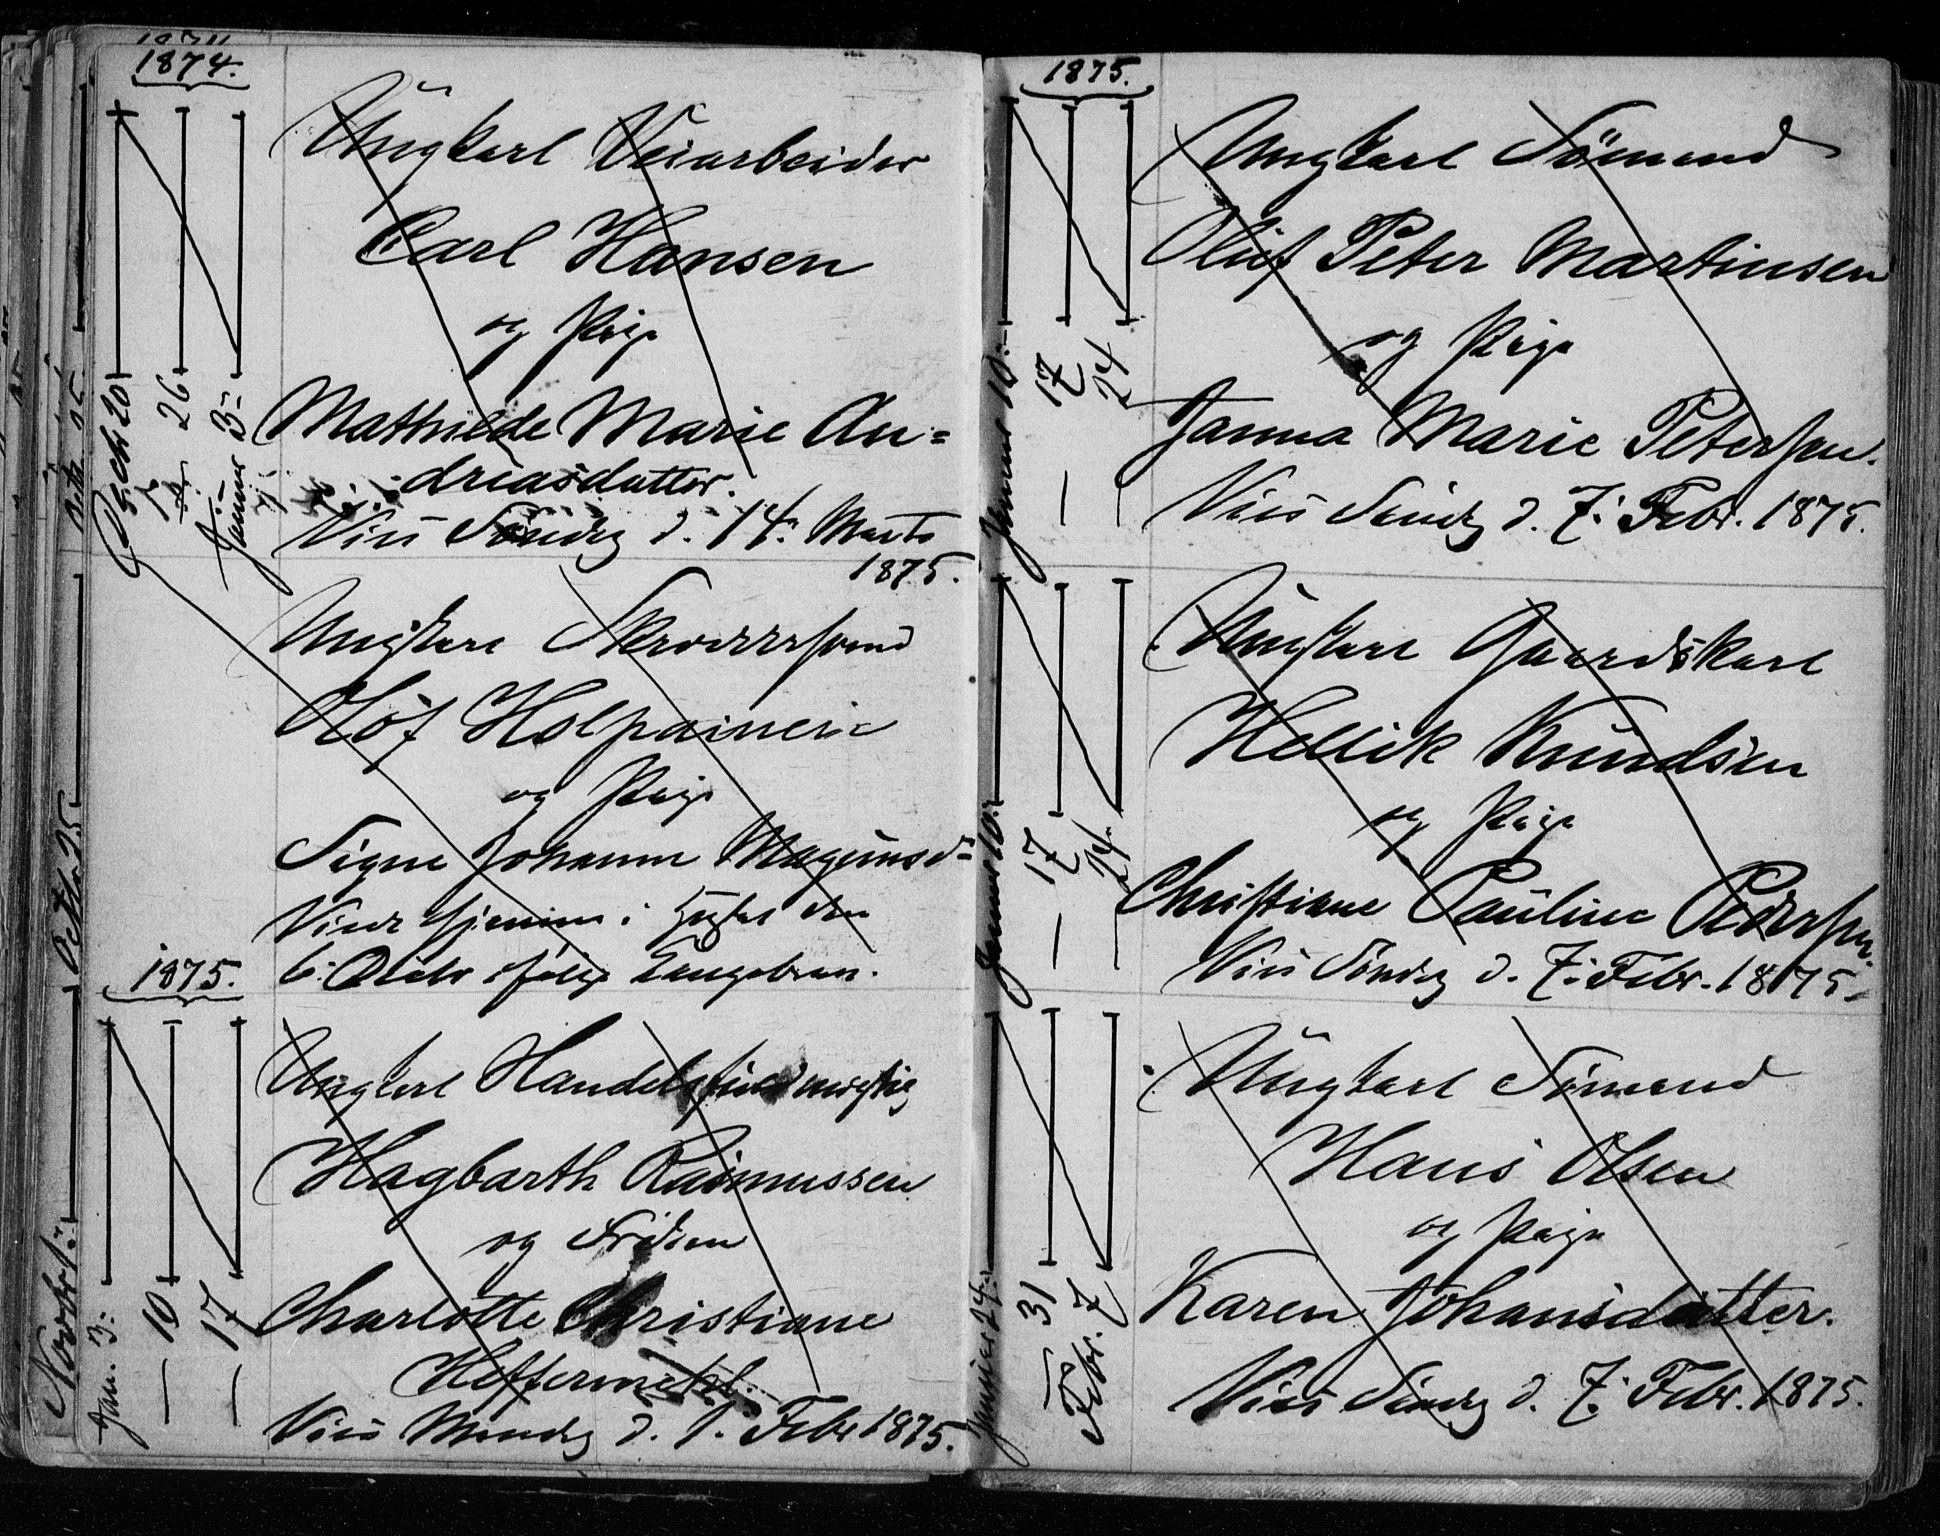 1874.
Decb 20
" 26
Januar 3
Ungkarl Veiarbeider
Carl Hansen
og Pige
Mathilde Marie An=
driasdatter.
Vies Søndg d. 14. Marts
1875.
Ungkarl Skræddersvend
Olof Holpainen
og Pige
Signe Johanne Magnusd=
i
den
6. Octb
1875.
Jan. 3
— 10
— 17
Ungkarl Handelsfuldmægtig
Hagbarth Rasmussen
og Frøken
Charlotte Christiane
Heffermehl.
Vies Mandg d. 1. Febr 1875.
Octbr 25
Novbr 1.
1875.
Januar 10.
— 17
— 24
Ungkarl Sømand
Oluf Peter Martinsen
og Pige
Janna Marie Petersen.
Vies Søndg d. 7. Febr. 1875.
Januar 10.
— 17
— 24.
Ungkarl Gaardskarl
Hellik Knudsen
og Pige
Christiane Pauline Pedersen.
Vies Søndg d. 7. Febr. 1875.
Januar 24.
— 31
Febr. 7
Ungkarl Sømand
Hans Olsen
og Pige
Karen Johansdatter.
Vies Søndg d. 7. Febr. 1875.